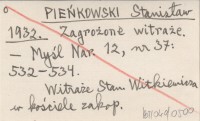 PIEŃKOWSKI Stanisław
1932. Zagrożone witraże.
— Myśl Nar. 12, nr 37:
532-534.
Witraże Stan. Witkiewicza
w kościele zakop.